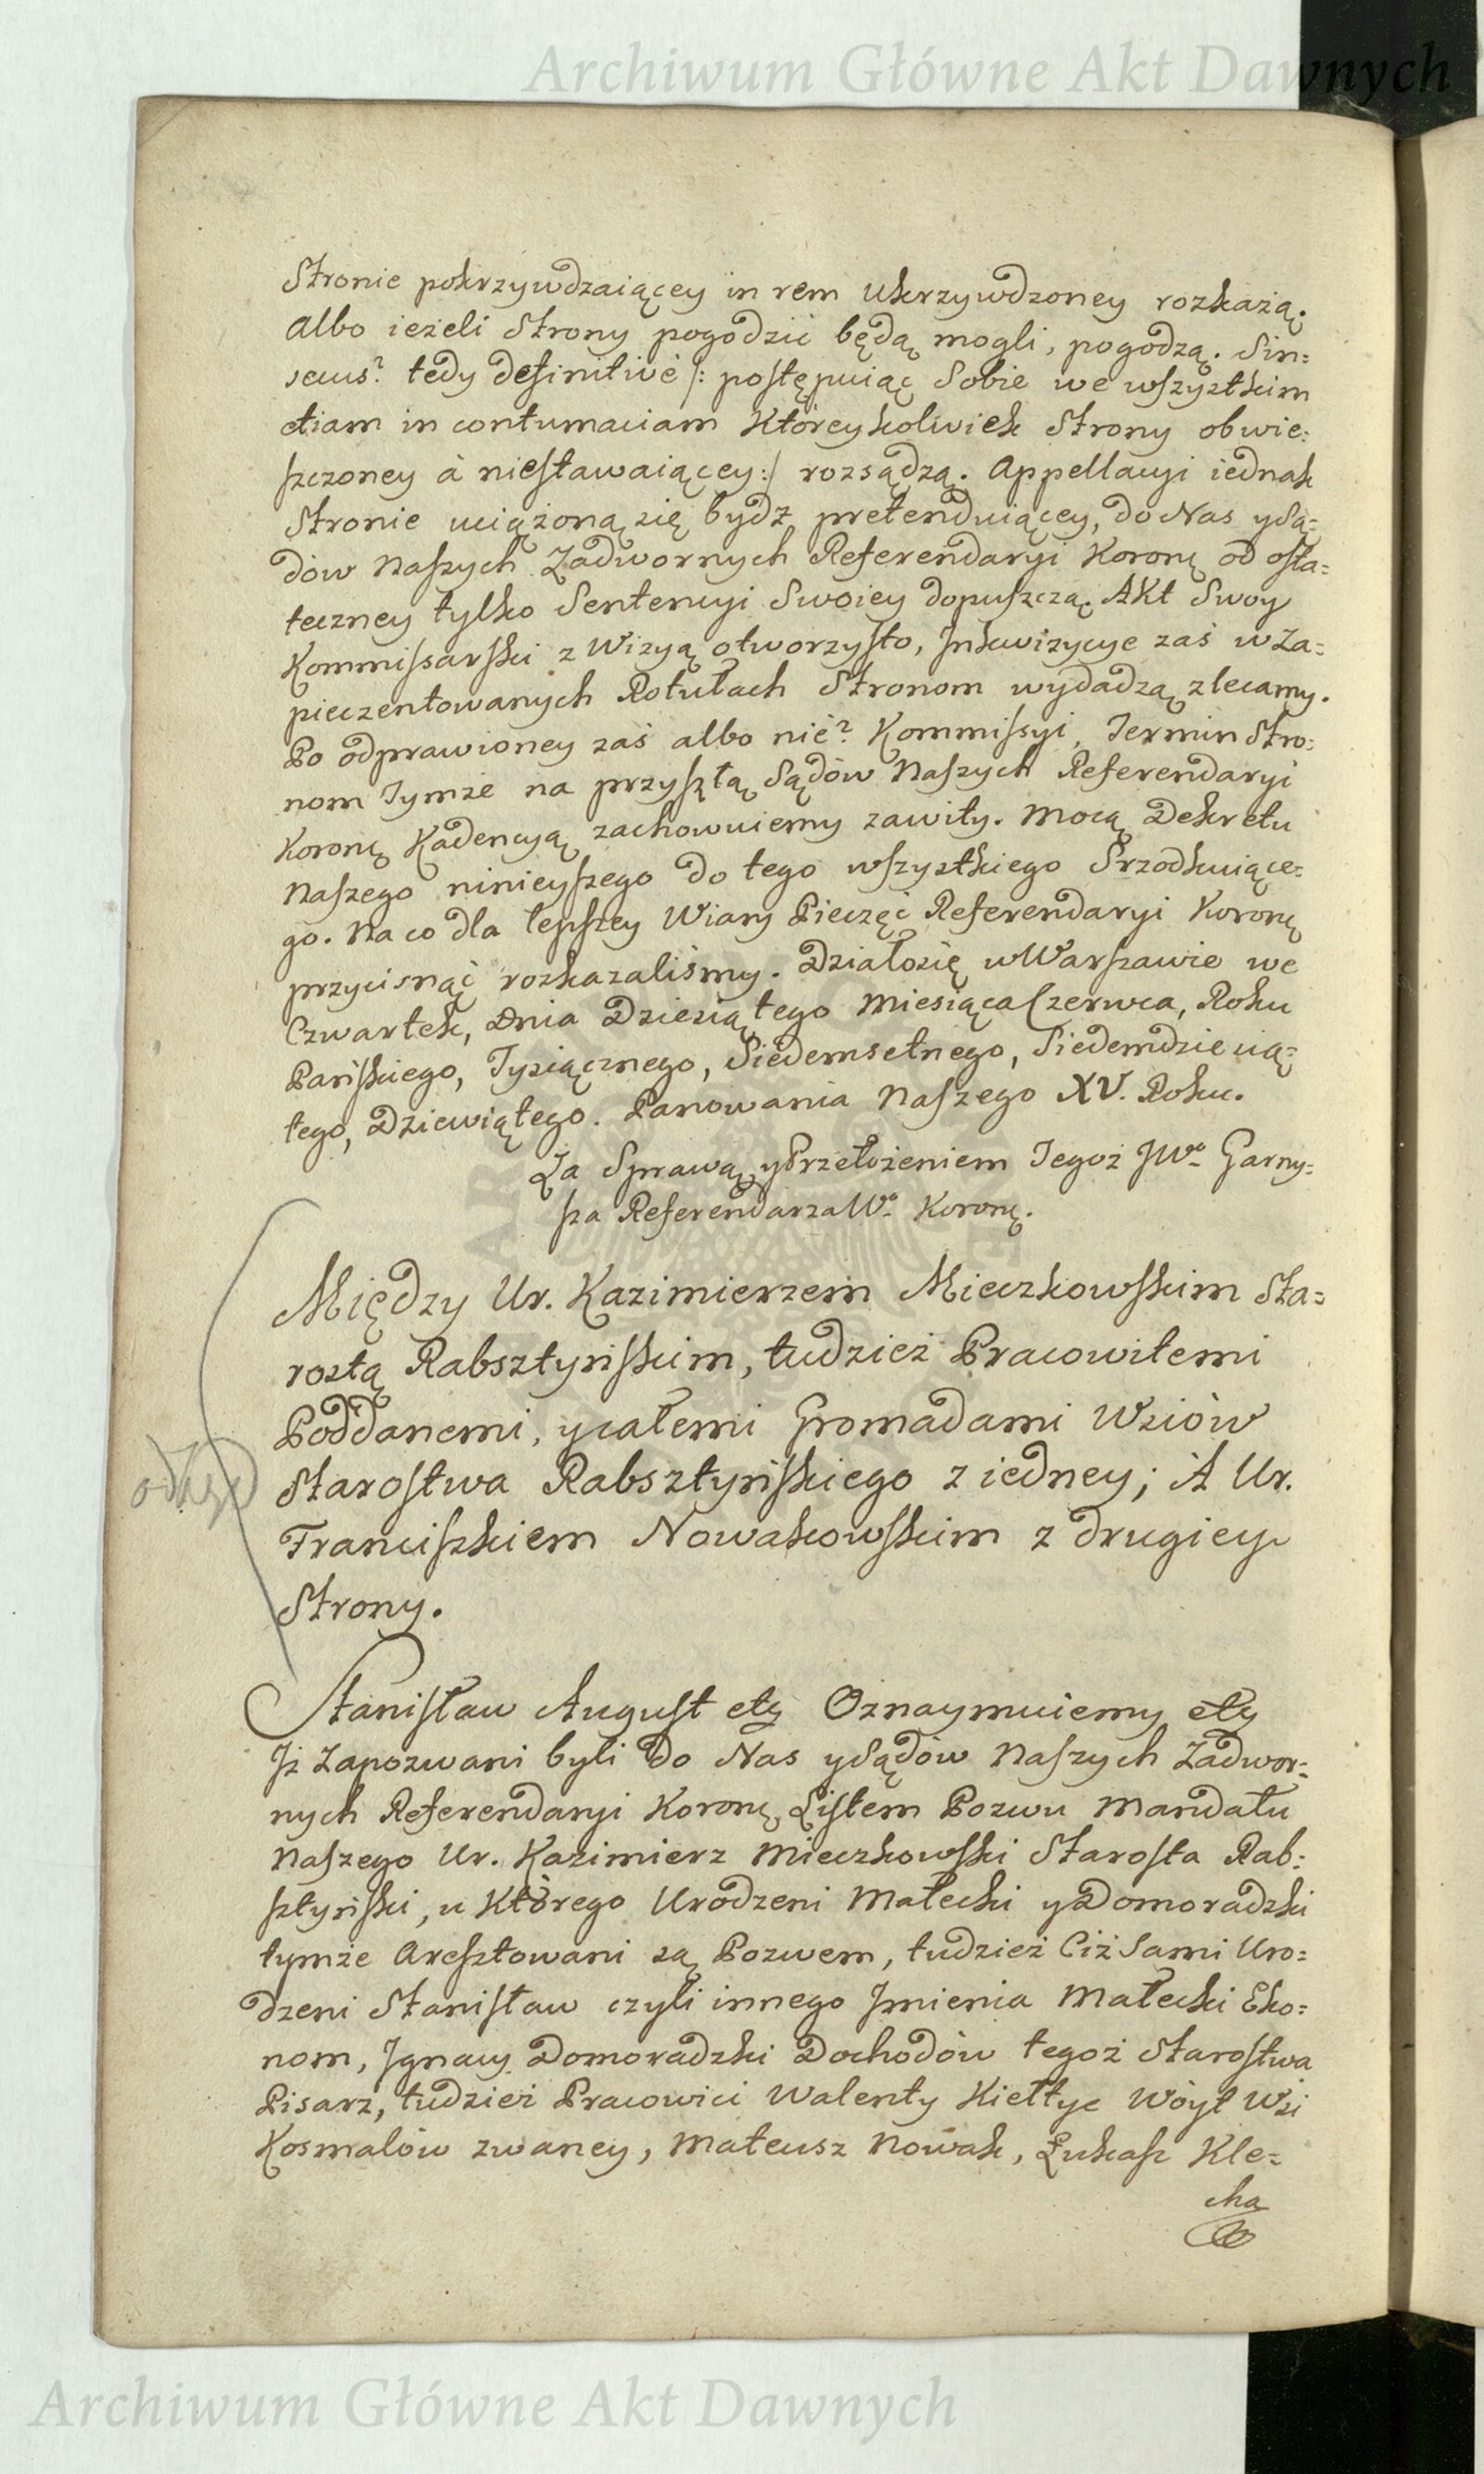 Archiwum Główne Akt Dawnych
Stronie pokrzywdzaiącey in rem ukrzywdzoney rozkażą.
Albo ieżeli Strony pogodzić będą mogli, pogodzą. Sin=
secus? tedy definitivè /: postępuiąc Sobie we wszystkim
etiam in contumaciam Któreykolwiek Strony obwie=
szczoney à niestawaiącey :/ rozsądzą. Appellacyi iednak
Stronie uciążoną się bydź pretenduiącey, do Nas y Są=
dów Naszych Zadwornych Referendaryi Koronę od osta=
teczney tylko Sentencyi Swoiey dopuszczą. Akt Swoy
Kommissarski z Wizyą otworzysto, Inkwizycye zaś w Za=
pieczentowanych Rotułach Stronom wydadzą zlecamy.
Po odprawioney zaś albo nié? Kommissyi, Termin Stro=
nom Tymże na przyszłą Sądów Naszych Referendaryi
Koronę Kadencyą zachowuiemy zawity. Mocą Dekretu
Naszego ninieyszego do tego wszystkiego Przodkuiące=
go. Na co dla lepszey Wiary Pieczęć Referendaryi Koronę
przycisnąć rozkazaliśmy. Działo się w Warszawie we
Czwartek, Dnia Dziesiątego Miesiąca Czerwca, Roku
Pańskiego, Tysiącznego, Siedemsetnego, Siedemdziesią=
tego, Dziewiątego. Panowania Naszego XV. Roku.
Za Sprawą y Przełożeniem Tegoż JWo Garny=
sza Referendarza Wo Koronę.
Między Ur. Kazimierzem Mieczkowskim Sta=
rostą Rabsztyńskim, tudzież Pracowitemi
Poddanemi, y całemi Gromadami Wsiów
Starostwa Rabsztyńskiego z iedney; A Ur.
Franciszkiem Nowakowskim z drugiey
Strony.
Stanisław August etc Oznaymuiemy etc
Iż Zapozwani byli do Nas y Sądów Naszych Zadwor=
nych Referendaryi Koronę Listem Pozwu Mandatu
Naszego Ur. Kazimierz Mieczkowski Starosta Rab=
sztyński, u Którego Urodzeni Małecki y Domoradzki
tymże Aresztowani są Pozwem, tudzież Ciż Sami Uro=
dzeni Stanisław czyli innego Imienia Małecki Eko=
nom, Ignacy Domoradzki Dochodów tegoż Starostwa
Pisarz, tudzież Pracowici Walenty Kiełtyc Wóyt Wsi
Kosmalów zwaney, Mateusz Nowak, Łukasz Kle=
cha
Archiwum Główne Akt Dawnych